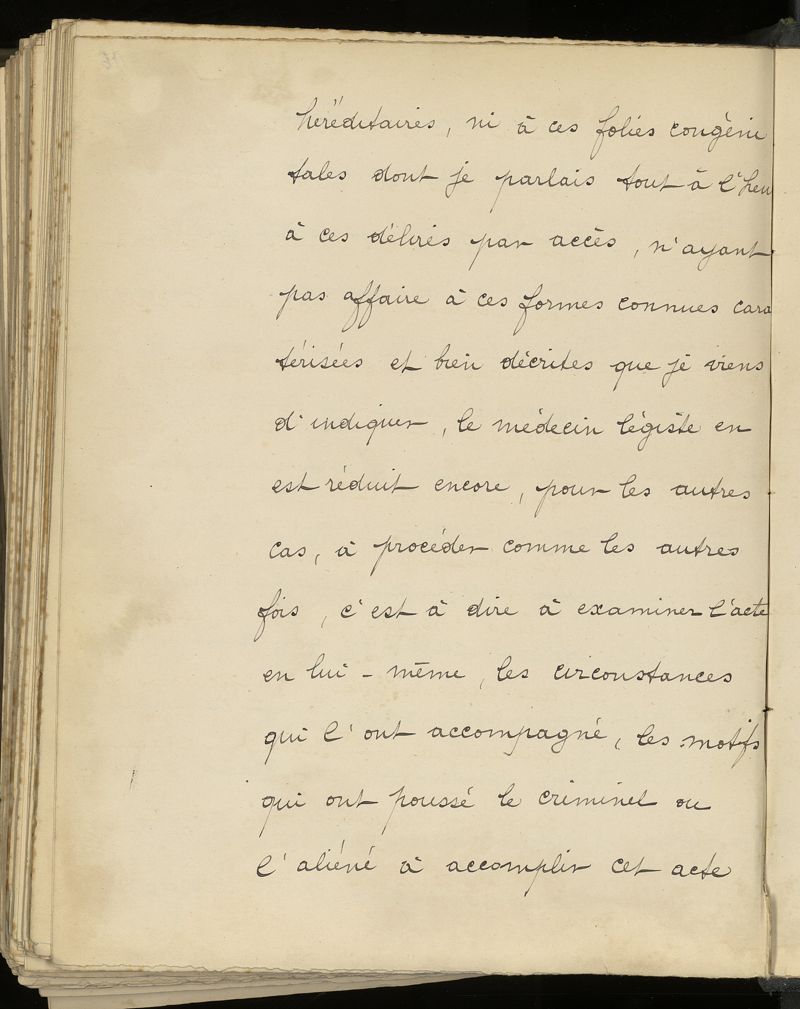 héréditaires, ni à ces folies congéni
tales dont je parlais tout à l'heu
à ces délires par accès, n'ayant
pas affaire à ces formes connues cara
térisées et bien décrites que je viens
d'indiquer, le médecin légiste en
est réduit encore, pour les autres
cas, à procéder comme les autres
fois, c'est à dire à examiner l'acte
en lui-même, les circonstances
qui l'ont accompagné, les motifs
qui ont poussé le criminel ou
l'aliéné à accomplir cet acte